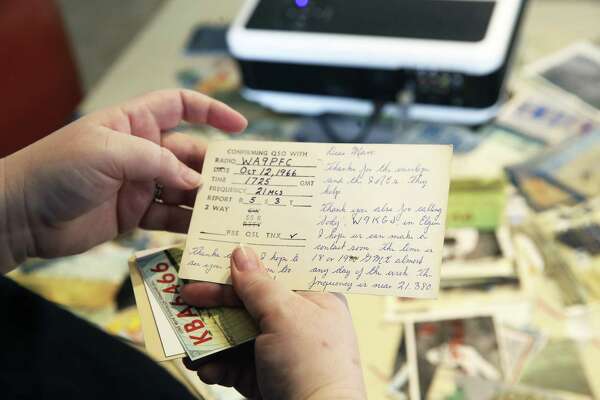 CONFIRMING QSO WITH
RADIO WA9PFC
DATE Oct 12, 1966
TIME 1725 GMT
FREQUENCY 21 MCS
REPORT R 5 S 3 T
2 WAY
SSB
PSE QSL TNX ✓
Thanks I hope to
see you
Dear Marv
Thanks for the envelope
and the IRCs they
help
Thank you also for calling
Betty, W9KGJ in Elgin
I hope we can make a
contact soon. the time is
18 or 19 GMT almost
any day of the week. The
frequency is near 21.380.
KBA6466